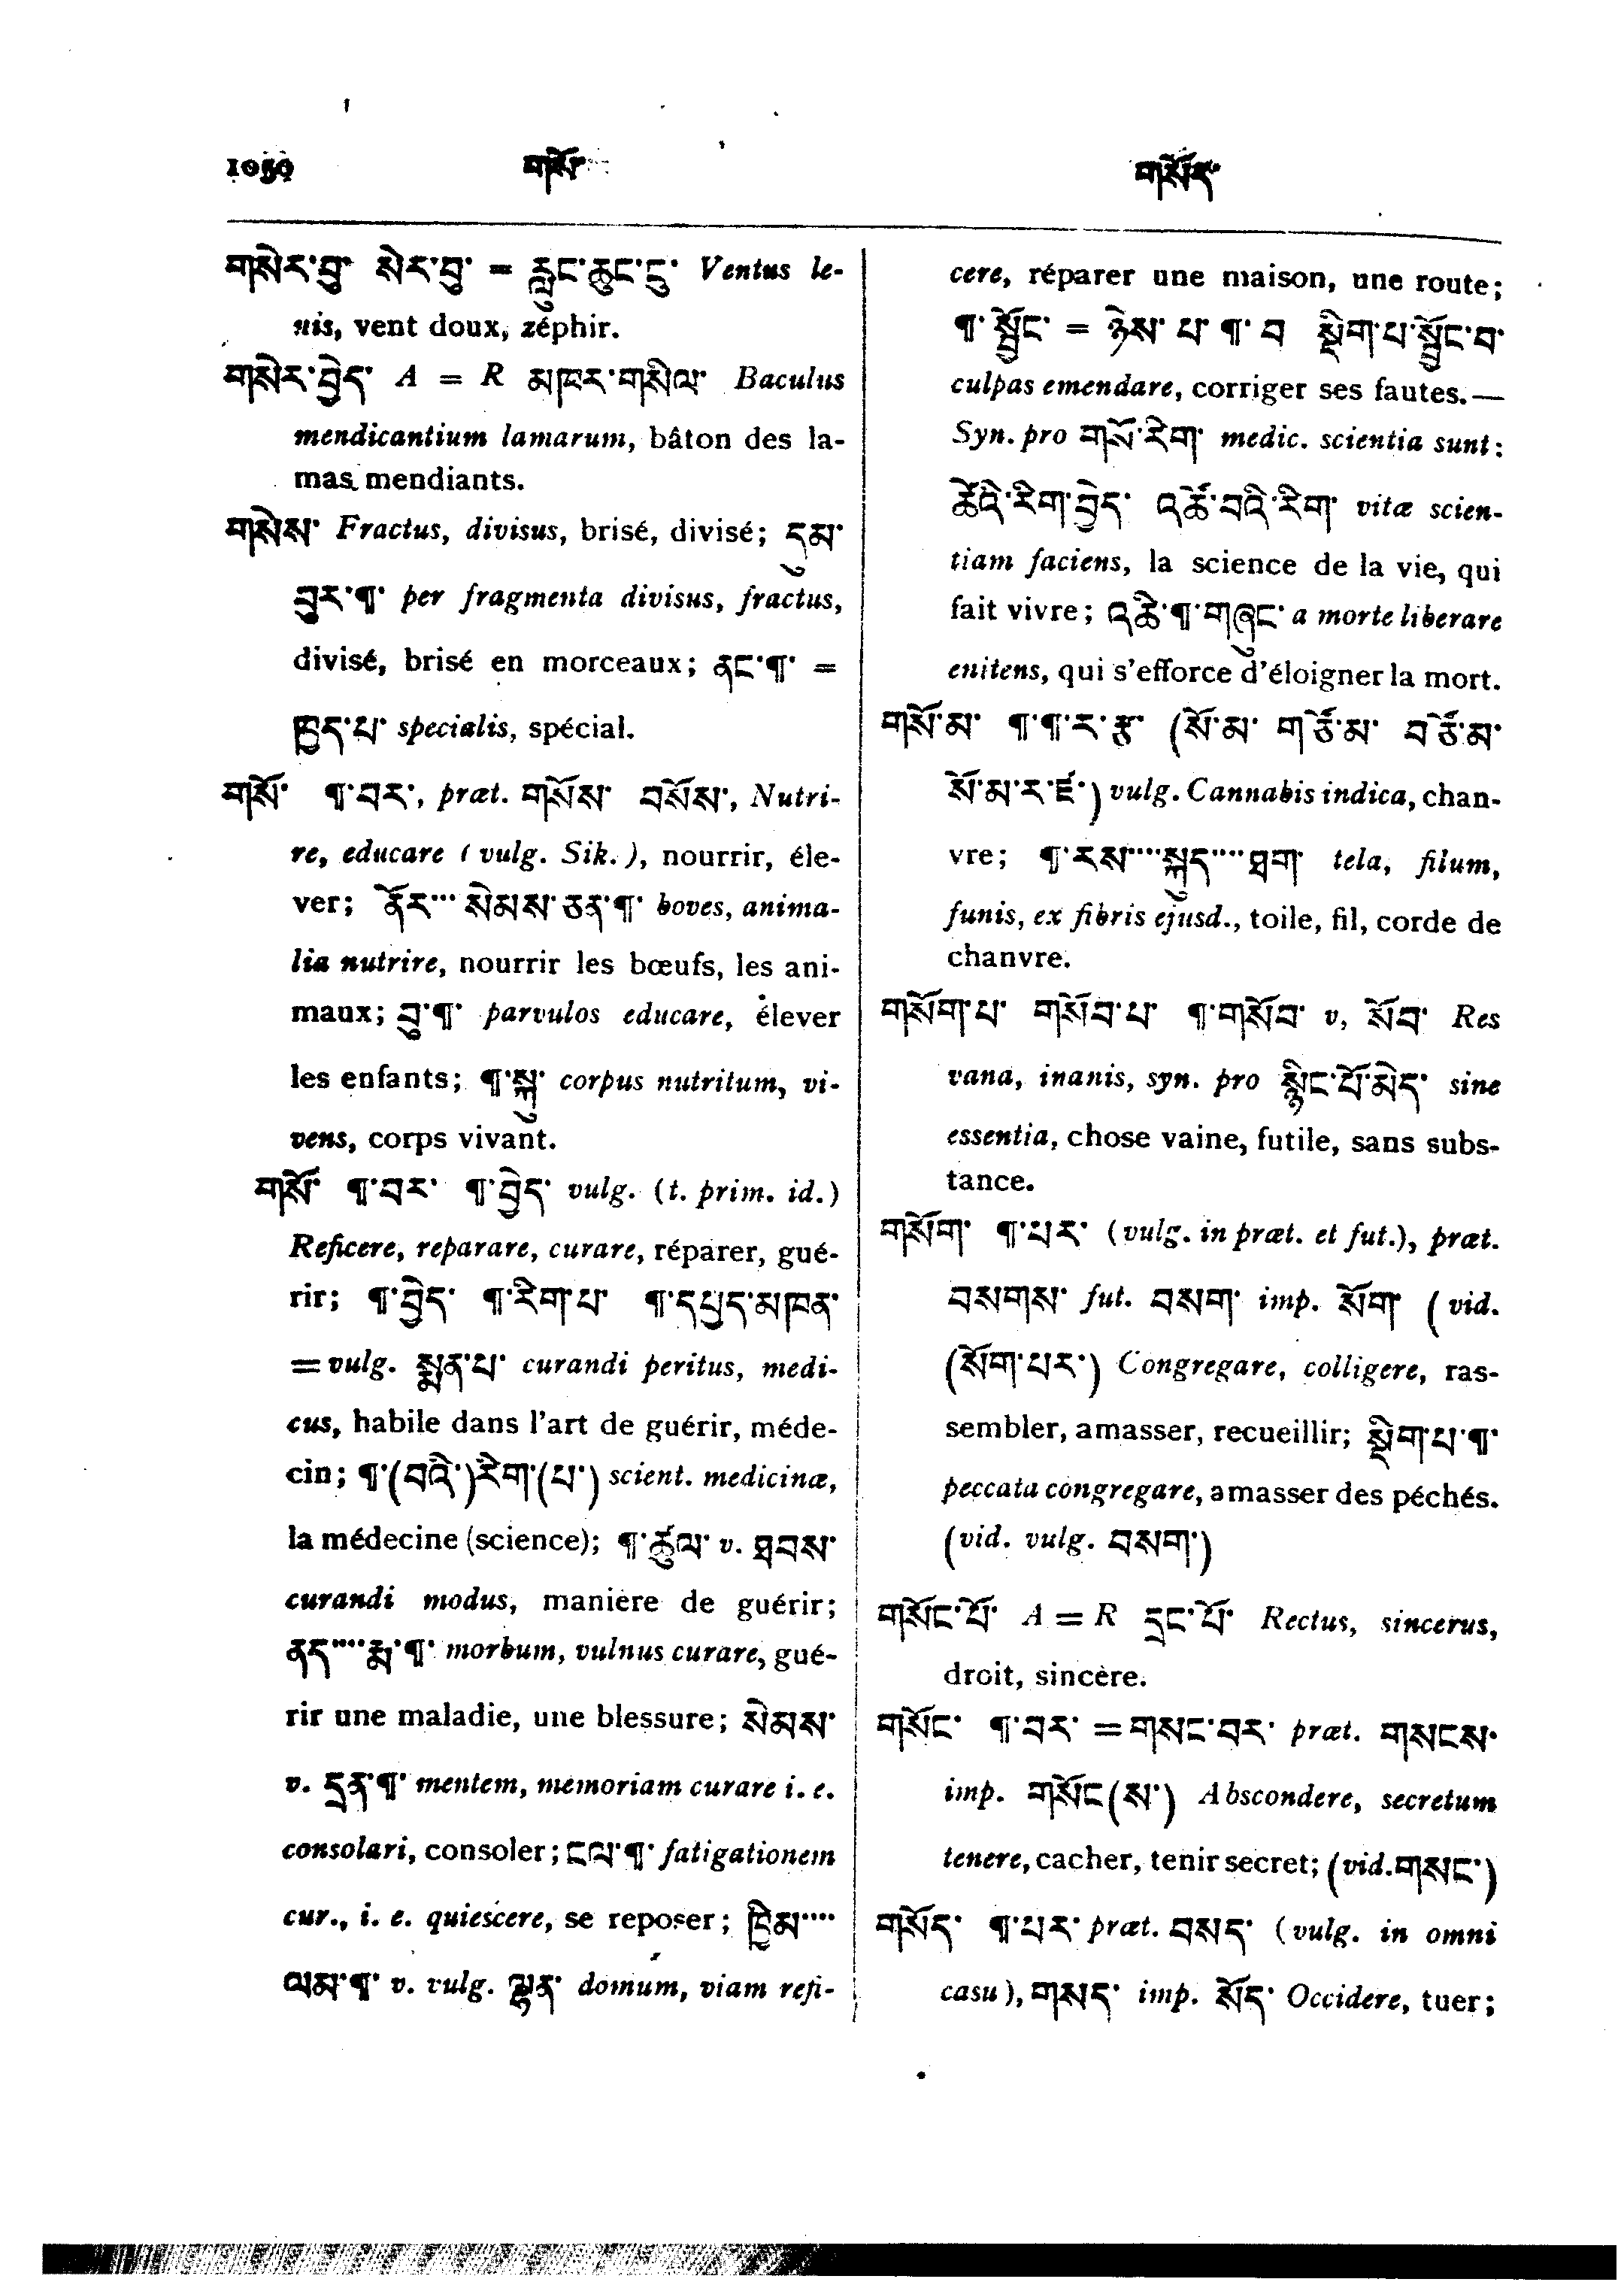 1050 གསོ་ གསོད་
གསེར་བུ་ སེར་བུ་ = རླུང་ཆུང་ངུ་ Ventus le-
nis, vent doux, zéphir.
གསེར་བྱེད་ A = R མཁར་གསིལ་ Baculus
mendicantium lamarum, bâton des la-
mas mendiants.
གསེས་ Fractus, divisus, brisé, divisé; དུམ་
བུར་¶་ per fragmenta divisus, fractus,
divisé, brisé en morceaux; ནང་¶་ =
ཁྱད་པ་ specialis, spécial.
གསོ་ ¶་བར་, præt. གསོས་ བསོས་, Nutri-
re, educare (vulg. Sik.), nourrir, éle-
ver; ནོར་་་་ སེམས་ཅན་¶་ boves, anima-
lia nutrire, nourrir les bœufs, les ani-
maux; བུ་¶་ parvulos educare, élever
les enfants; ¶་སྐུ་ corpus nutritum, vi-
vens, corps vivant.
གསོ་ ¶་བར་ ¶་བྱེད་ vulg. (t. prim. id.)
Reficere, reparare, curare, réparer, gué-
rir; ¶་བྱེད་ ¶་རིག་པ་ ¶་དཔྱད་མཁན་
= vulg. སྨན་པ་ curandi peritus, medi-
cus, habile dans l'art de guérir, méde-
cin; ¶་(བའི་)རིག་(པ་) scient. medicinæ,
la médecine (science); ¶་ཚུལ་ v. ཐབས་
curandi modus, manière de guérir;
ནད་་་་་རྨ་¶་ morbum, vulnus curare, gué-
rir une maladie, une blessure; སེམས་
v. དྲན་¶་ mentem, memoriam curare i. e.
consolari, consoler; ངལ་¶་ fatigationem
cur., i. e. quiescere, se reposer; ཁྱིམ་་་་་
ལམ་¶་ v. vulg. ལྷན་ domum, viam refi-
cere, réparer une maison, une route;
¶་ སྦྱོང་ = ཉེས་ པ་ ¶་ བ སྡིག་པ་སྦྱོང་བ་
culpas emendare, corriger ses fautes. —
Syn. pro གསོ་རིག་ medic. scientia sunt:
ཚེའི་རིག་བྱེད་ འཚོ་བའི་རིག་ vitæ scien-
tiam faciens, la science de la vie, qui
fait vivre; འཆི་¶་གཞུང་ a morte liberare
enitens, qui s'efforce d'éloigner la mort.
གསོ་མ་ ¶་¶་ར་རྩ་ (སོ་མ་ གཙོ་མ་ བཙོ་མ་
སོ་མ་ར་ཛ་) vulg. Cannabis indica, chan-
vre; ¶་རས་་་་་སྐུད་་་་་ཐག་ tela, filum,
funis, ex fibris ejusd., toile, fil, corde de
chanvre.
གསོག་པ་ གསོབ་པ་ ¶་གསོབ་ v, སོབ་ Res
vana, inanis, syn. pro སྙིང་པོ་མེད་ sine
essentia, chose vaine, futile, sans subs-
tance.
གསོག་ ¶་པར་ (vulg. in præt. et fut.), præt.
བསགས་ fut. བསག་ imp. སོག་ (vid.
(སོག་པར་) Congregare, colligere, ras-
sembler, amasser, recueillir; སྡིག་པ་¶་
peccata congregare, amasser des péchés.
(vid. vulg. བསག་)
གསོང་པོ་ A = R དྲང་པོ་ Rectus, sincerus,
droit, sincère.
གསོང་ ¶་བར་ = གསང་བར་ præt. གསངས་
imp. གསོང(ས་) Abscondere, secretum
tenere, cacher, tenir secret; (vid. གསང་)
གསོད་ ¶་པར་ præt. བསད་ (vulg. in omni
casu), གསད་ imp. སོད་ Occidere, tuer;